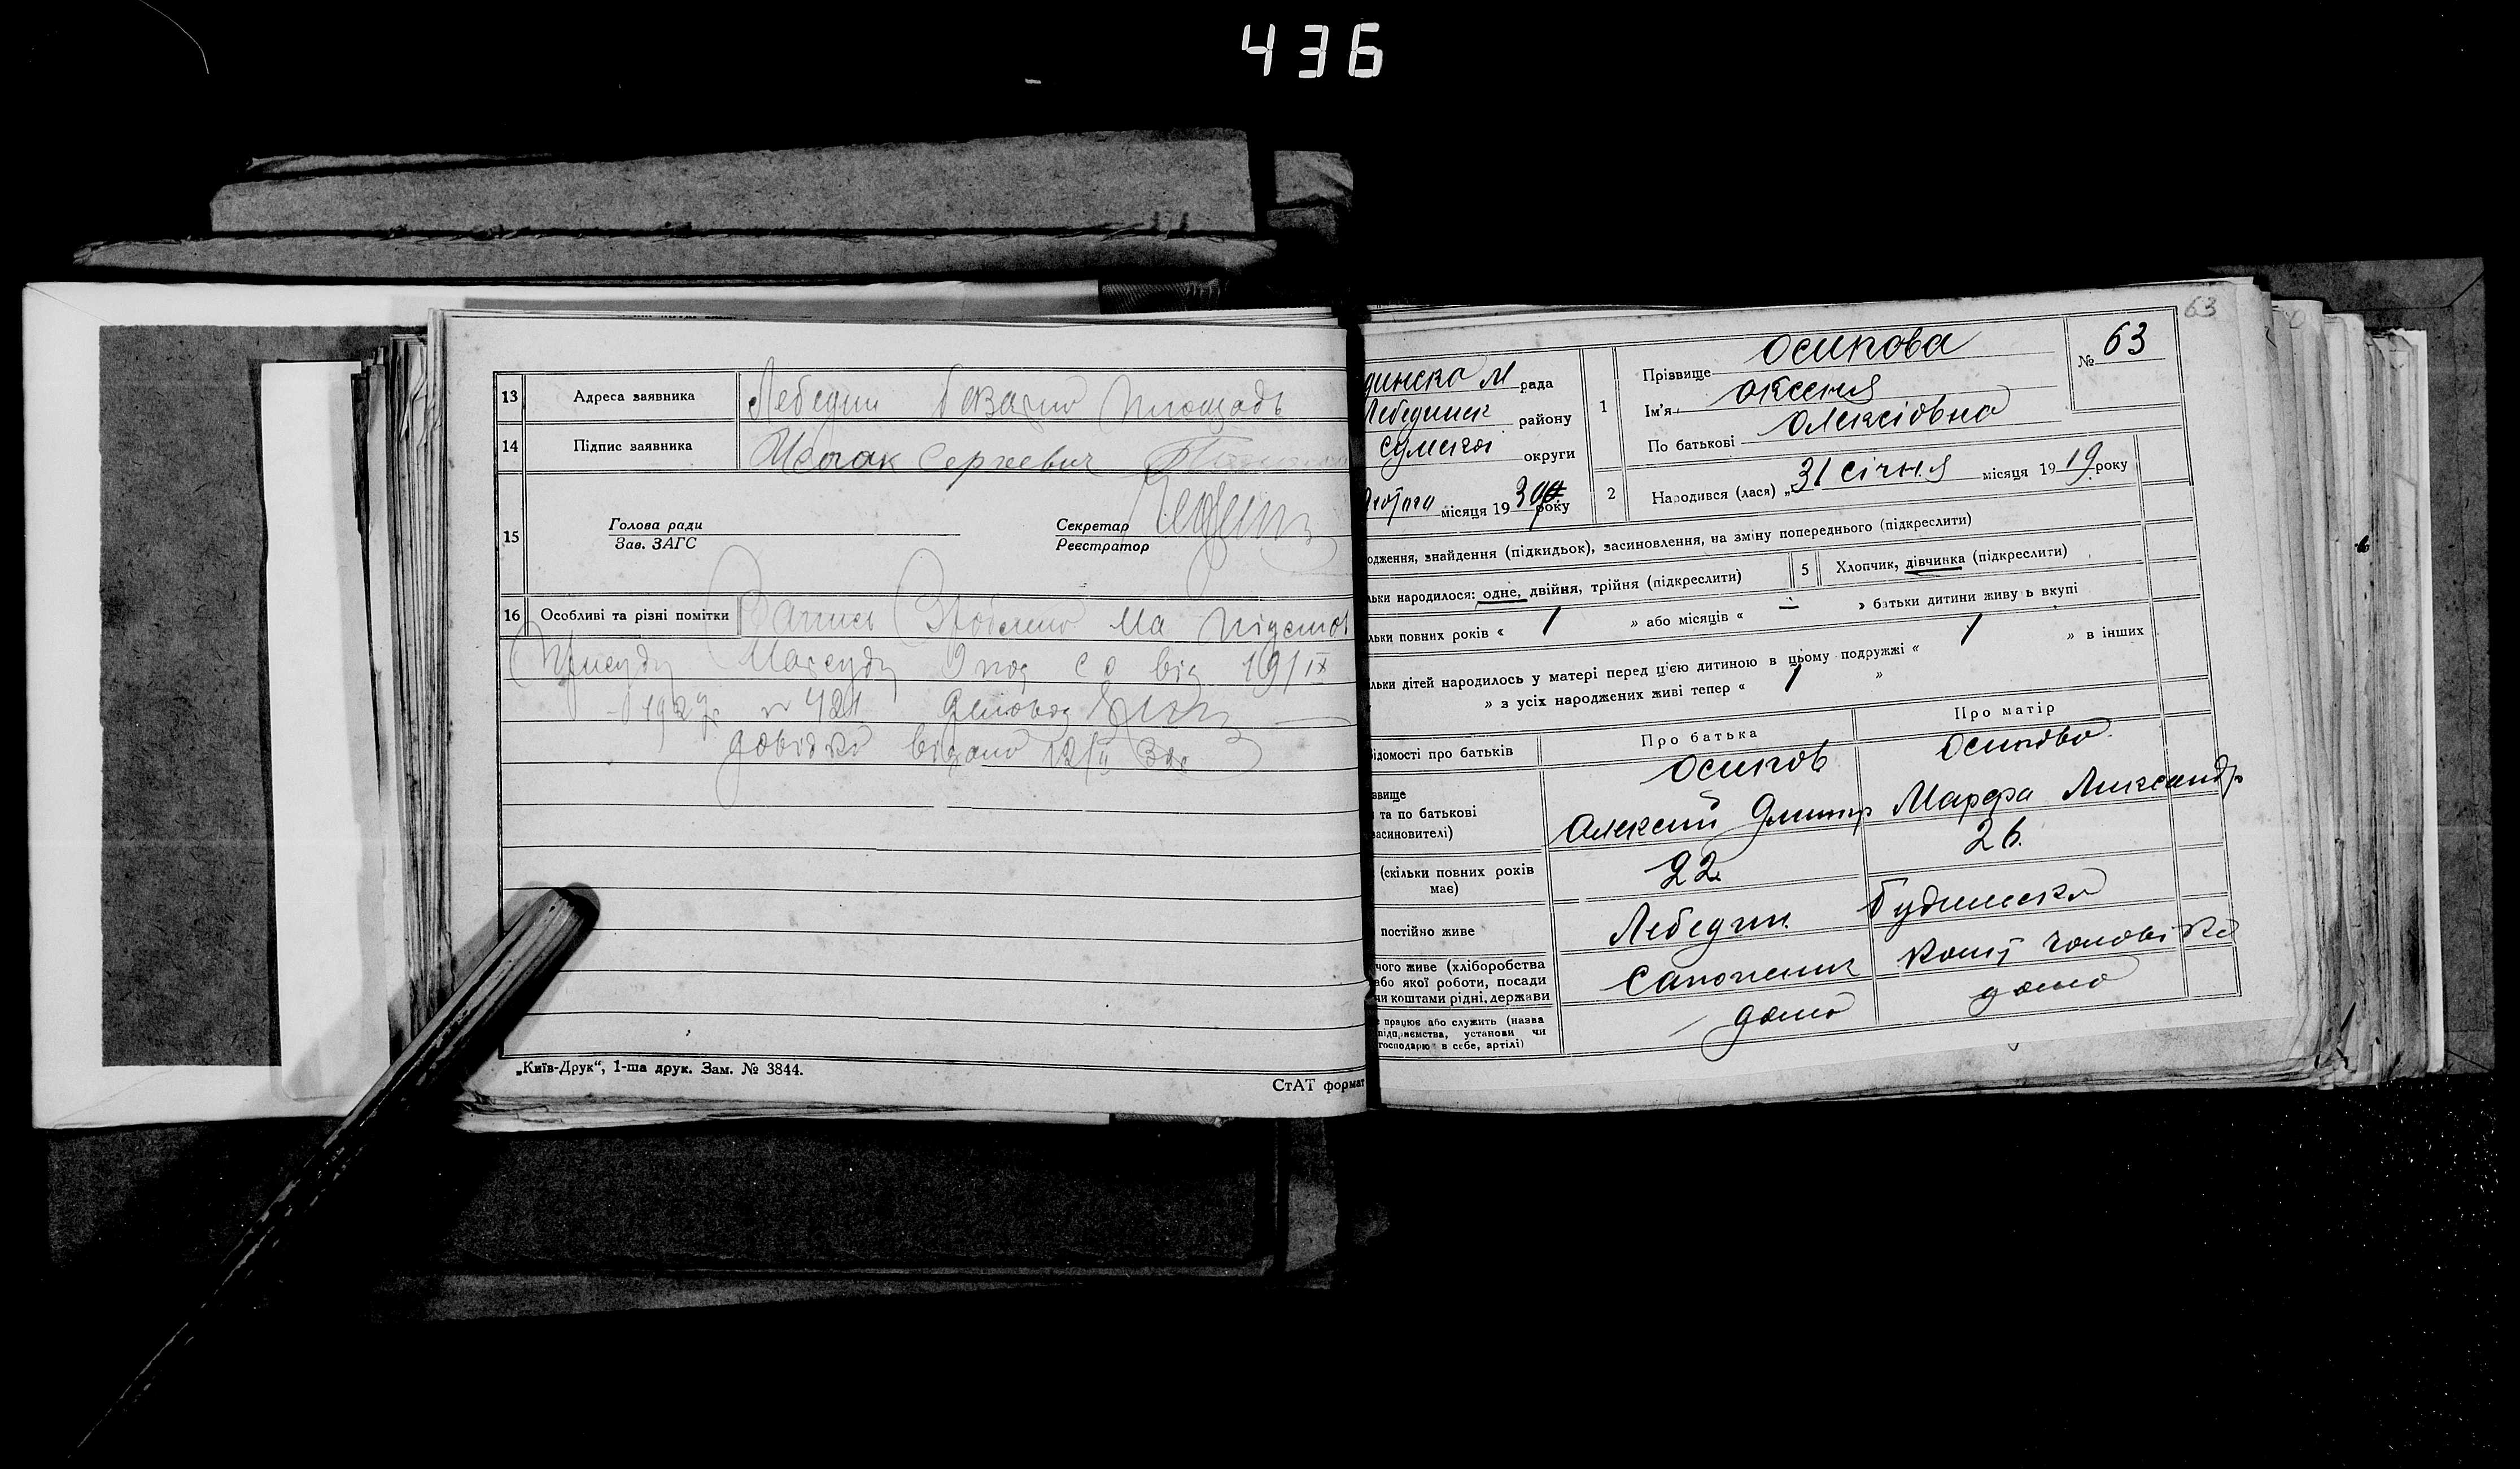 436
13 Адреса заявника Лебедин площадь
14 Підпис заявника Сергеевич
15 Голова ради
Зав. ЗАГС
Секретар
Реєстратор
16 Особливі та різні помітки Запись Зроблено на підстав
Присуду Нарсуду від 19/IX
1929 р № 421
довідка видана 12/II 30р
„Київ-Друк“, 1-ша друк. Зам. № 3844.
СтАТ формат
63
динска М рада
Лебединск району
Сумской округи
Лютого місяця 1930 року
1 Прізвище Осипова
Ім'я Оксеня
По батькові Олексіовна
№ 63
2 Народився (лася) „31 січня місяця 1919 року
одження, знайдення (підкидьок), засиновлення, на зміну попереднього (підкреслити)
льки народилося: одне, двійня, трійня (підкреслити) 5 Хлопчик, дівчинка (підкреслити)
льки повних років « 1 » або місяців « — » батьки дитини живу ь вкупі
льки дітей народилось у матері перед цією дитиною в цьому подружжі « 1 » в інших
» з усіх народжених живі тепер « 1 »
ідомості про батьків Про батька Про матір
звище Осипов Осипова
та по батькові
засиновителі) Олексей Дмитр Марфа Александр
(скільки повних років має) 22 26
постійно живе Лебедин Будинска
чого живе (хліборобства
або якої роботи, посади
чи коштами рідні, держави Сапожник кошт чоловіка
працює або служить (назва
підприємства, установи чи
господарю в себе, артілі) дома дома